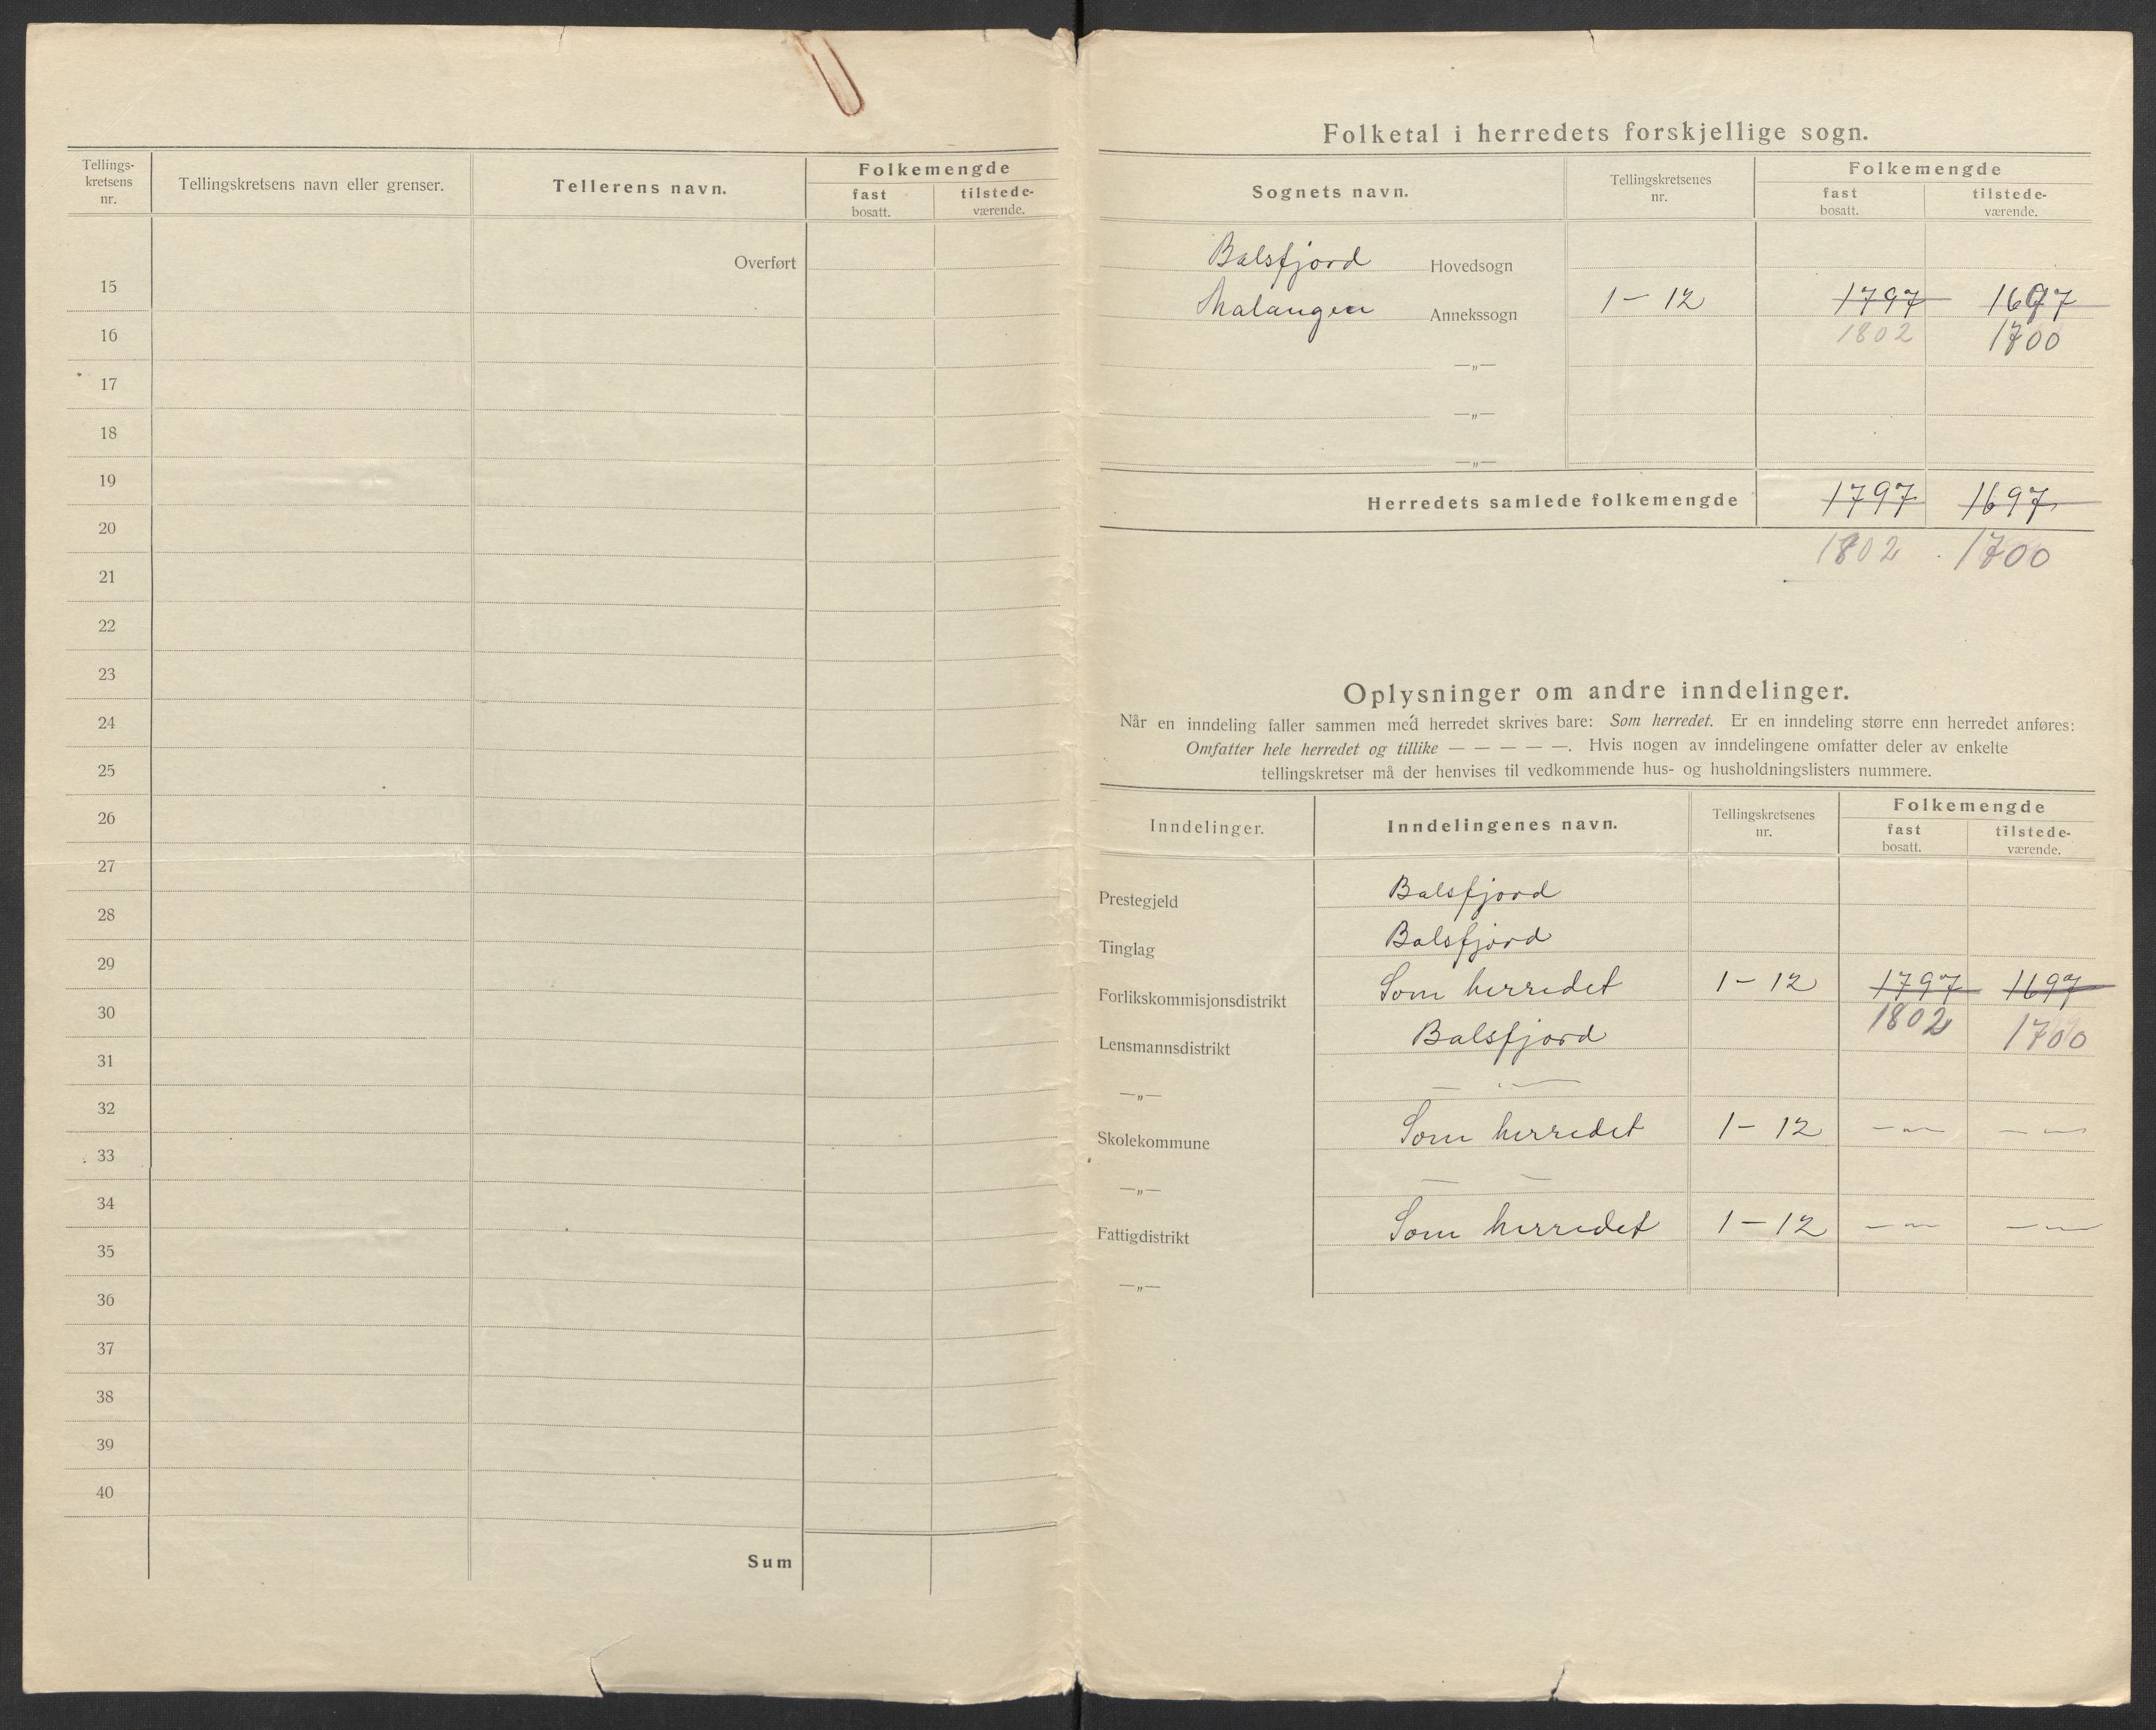 Tellings-
kretsens
nr.
Tellingskretsens navn eller grenser.
Tellerens navn.
Folkemengde
fast
bosatt.
tilstede-
værende.
Overført
15
16
17
18
19
20
21
22
23
24
25
26
27
28
29
30
31
32
33
34
35
36
37
38
39
40
Sum
Folketal i herredets forskjellige sogn.
Sognets navn.
Tellingskretsenes
nr.
Folkemengde
fast
bosatt.
tilstede-
værende.
Balsfjord Hovedsogn
Malangen Annekssogn 1 – 12 1797 1697
1802 1700
—„—
—„—
—„—
Herredets samlede folkemengde 1797 1697
1802 1700
Oplysninger om andre inndelinger.
Når en inndeling faller sammen med herredet skrives bare: Som herredet. Er en inndeling større enn herredet anføres:
Omfatter hele herredet og tillike — — — — —. Hvis nogen av inndelingene omfatter deler av enkelte
tellingskretser må der henvises til vedkommende hus- og husholdningslisters nummere.
Inndelinger.
Inndelingenes navn.
Tellingskretsenes
nr.
Folkemengde
fast
bosatt.
tilstede-
værende.
Prestegjeld Balsfjord
Tinglag Balsfjord
Forlikskommisjonsdistrikt Som herredet 1 – 12 1797 1697
1802 1700
Lensmannsdistrikt Balsfjord
—„— — —
Skolekommune Som herredet 1 – 12 —„— —„—
—„— — —
Fattigdistrikt Som herredet 1 – 12 —„— —„—
—„—